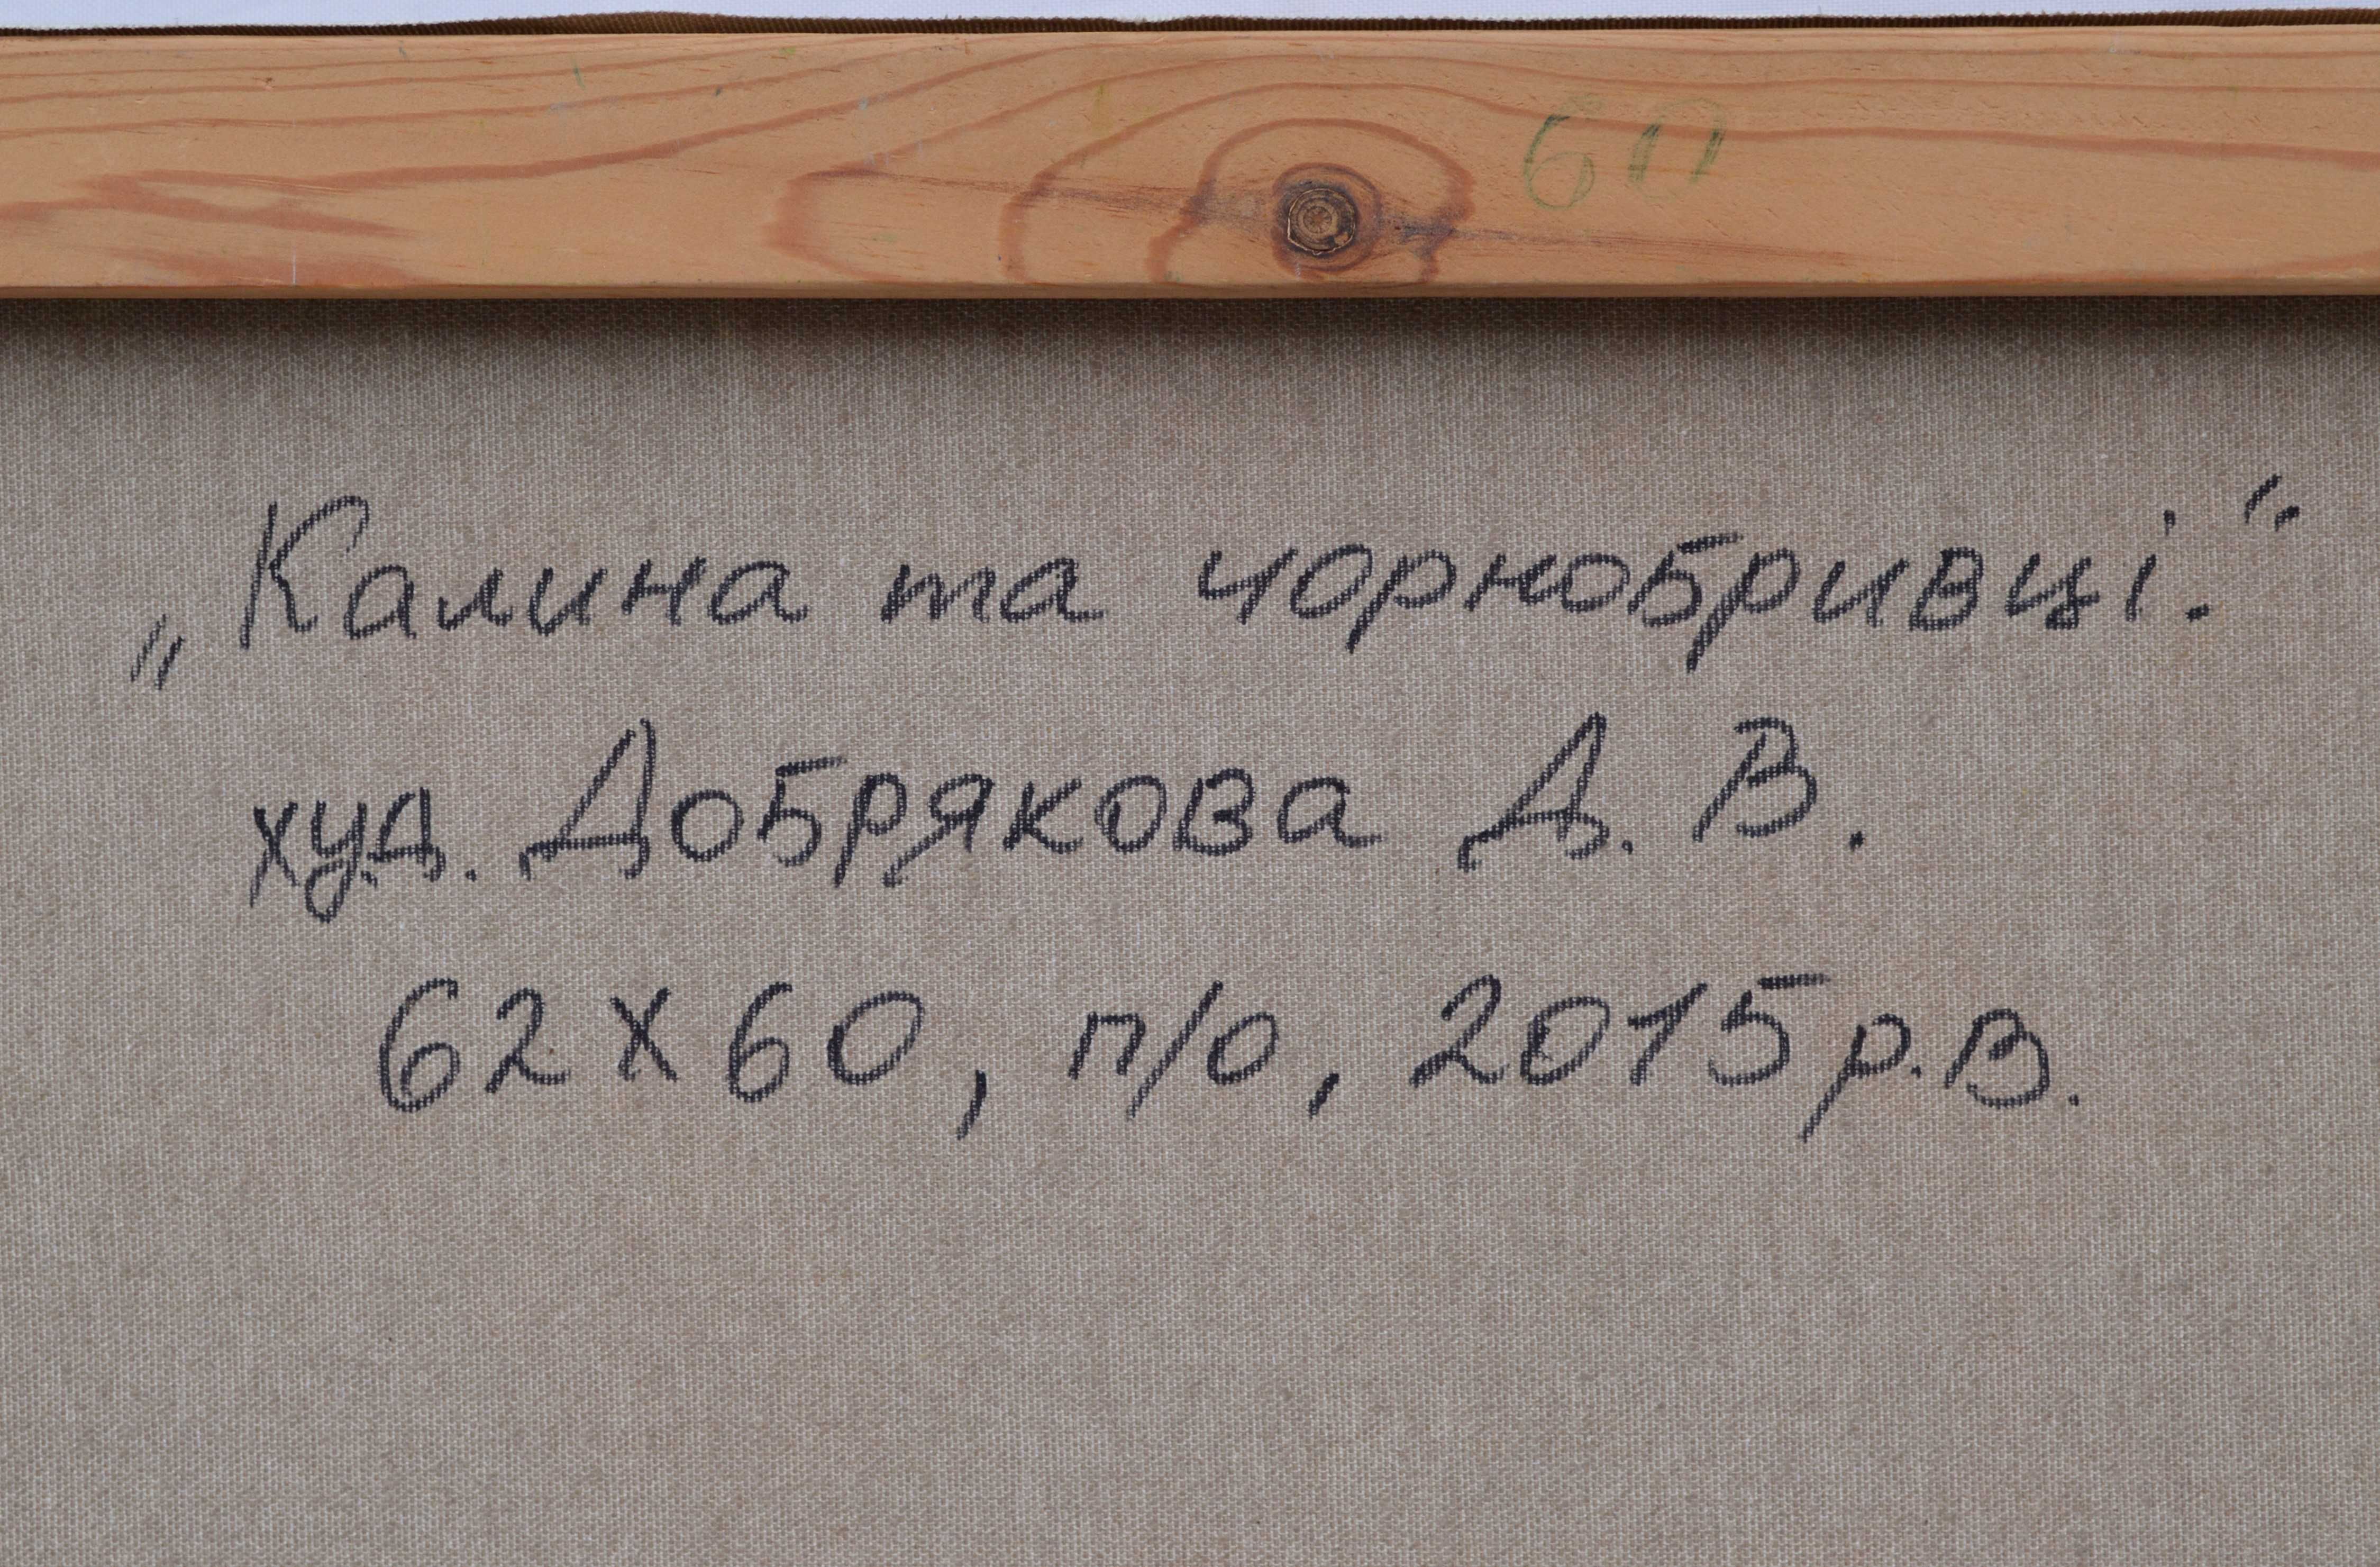 60
„Калина та чорнобривці.“
худ. Добрякова Д. В.
62 х 60, п/о, 2015 р.в.